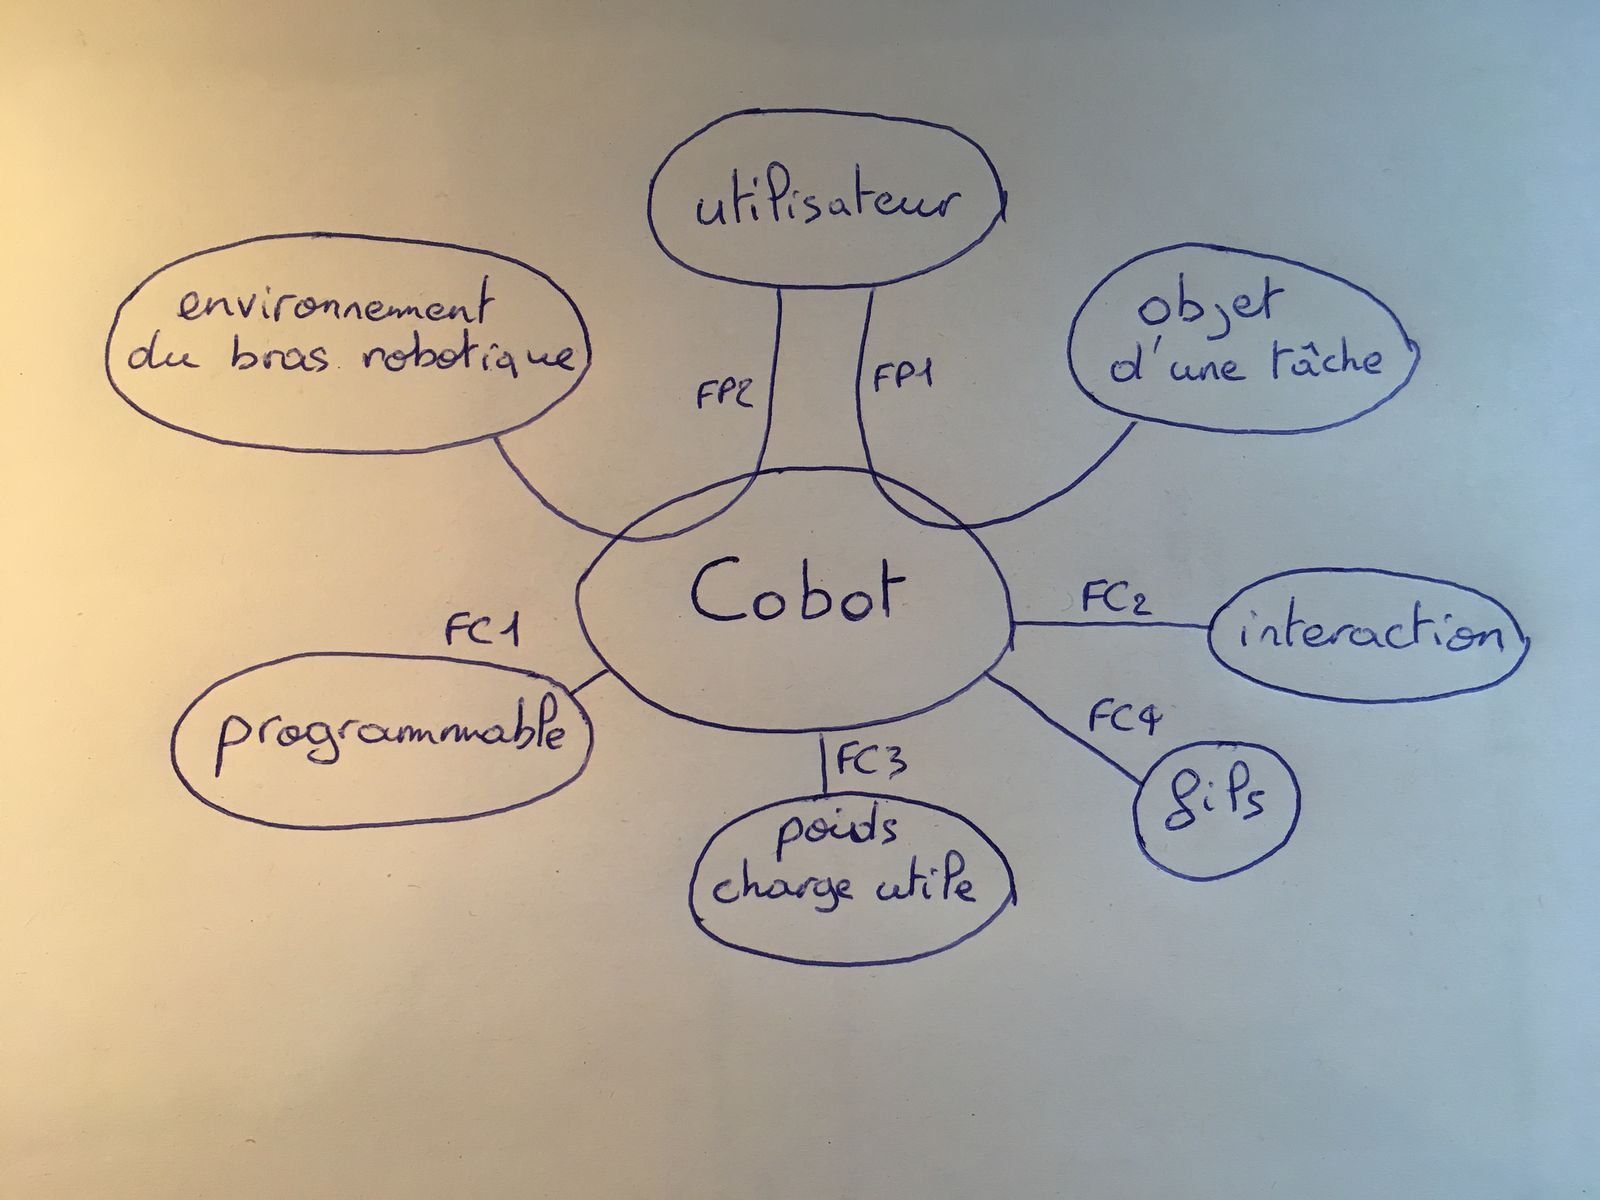 utilisateur
environnement
du bras robotique
objet
d'une tâche
FP2
FP1
Cobot
FC1
programmable
FC2
interaction
FC4
fils
FC3
poids
charge utile